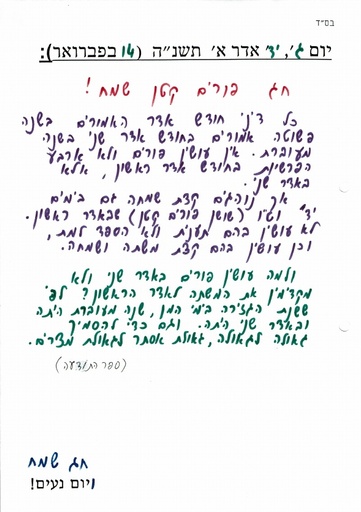 בס"ד
יום ג', יד' אדר א' תשנ"ה (14 בפברואר):
חג פורים קטן שמח!
כל דיני חודש אדר האמורים בשנה
פשוטה אמורים בחודש אדר שני בשנה
מעוברת. אין עושין פורים ולא ארבע
הפרשיות בחודש אדר ראשון, אלא
באדר שני.
אך נוהגים קצת שמחה גם בימים
יד' וט"ו (שושן פורים קטן) שבאדר ראשון.
לא עושין בהם תענית ולא הספד למת,
וכן עושין בהם קצת משתה ושמחה.
ולמה עושין פורים באדר שני ולא
מקדימין את המשתה לאדר הראשון? לפי
ששנת הגזירה בימי המן, שנה מעוברת היתה
ובאדר שני היתה. וגם כדי להסמיך
גאולה לגאולה, גאולת אסתר לגאולת מצרים.
(ספר התודעה)
חג שמח
ויום נעים!